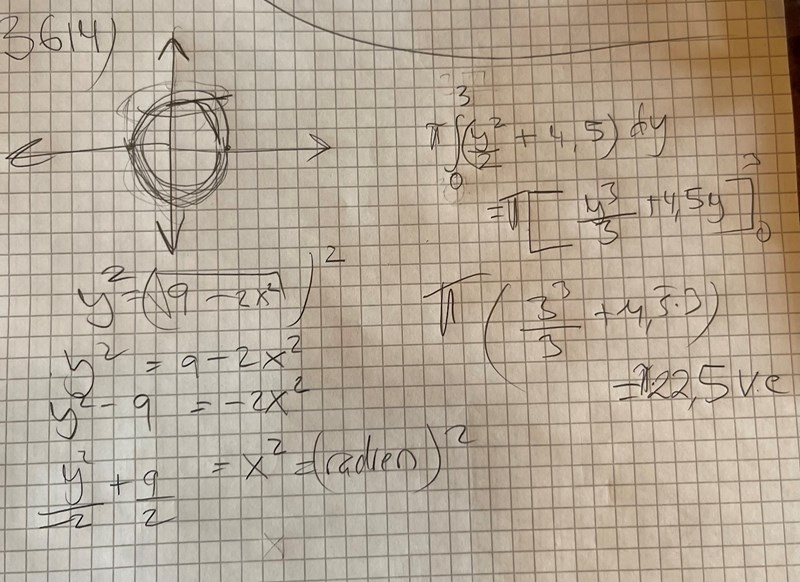 3614)
y² = (√9 - 2x²)²
y² = 9 - 2x²
y² - 9 = -2x²
y²/-2 + 9/2 = x² = (radien)²
π ∫₀³ (y²/2 + 4,5) dy
= π [y³/3 + 4,5y]₀³
π (3³/3 + 4,5·3)
= π22,5 v.e